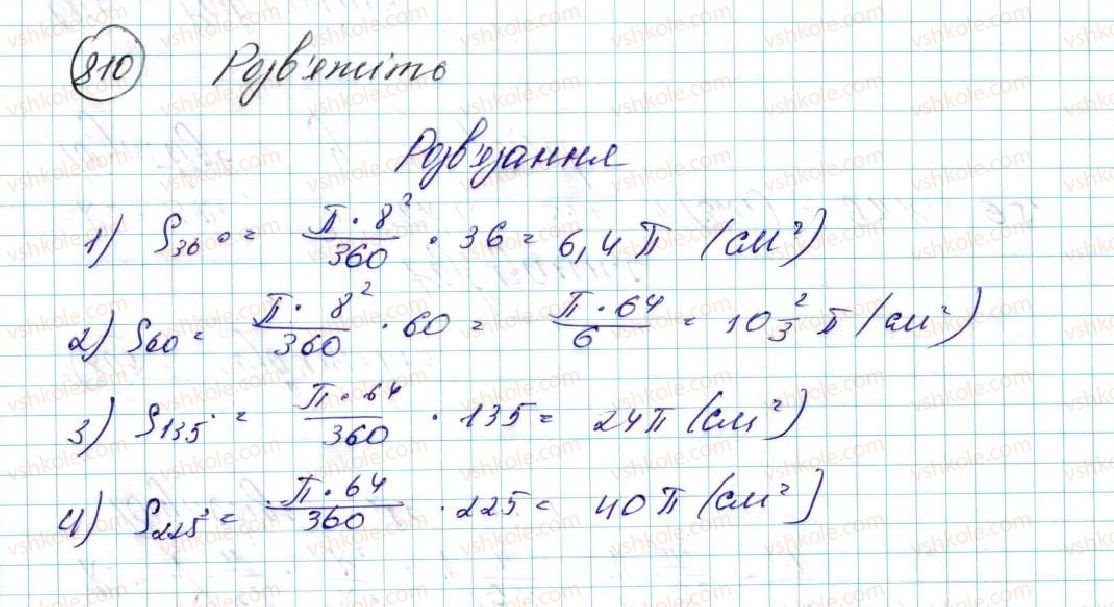 810 Розв'яжіть
Розв'язання
1) S₃₆° = π · 8² / 360 · 36 = 6,4 π (см²)
2) S₆₀ = π · 8² / 360 · 60 = π · 64 / 6 = 10 2/3 π (см²)
3) S₁₃₅° = π · 64 / 360 · 135 = 24π (см²)
4) S₂₂₅° = π · 64 / 360 · 225 = 40π (см²)
vshkole.com